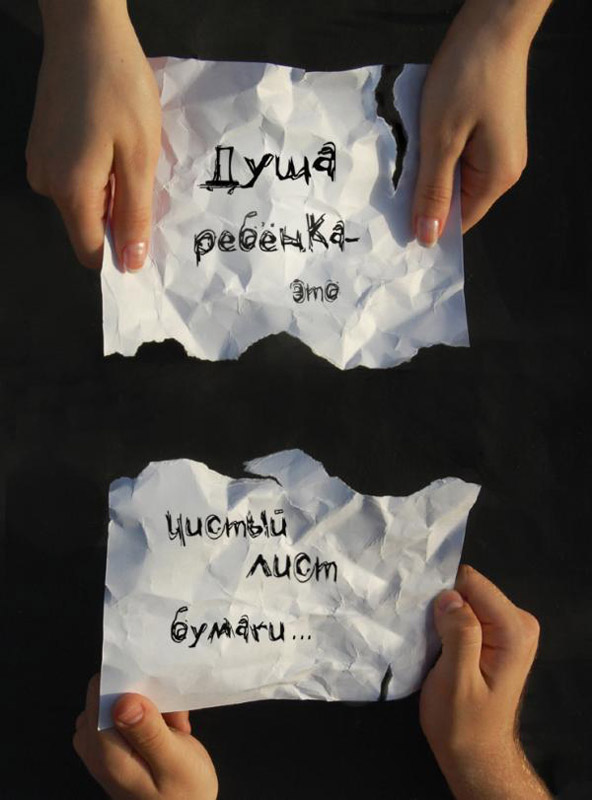 Душа
ребёнка-
это
чистый
лист
бумаги...